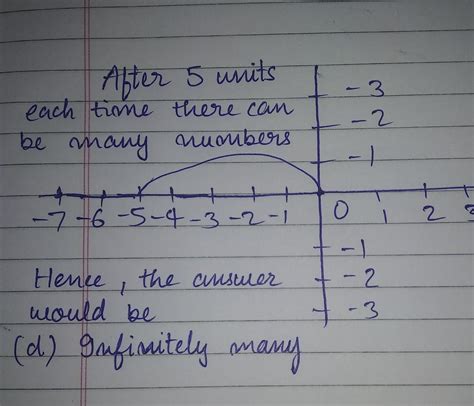 After 5 units
each time there can
be many numbers
-3
-2
-1
-7 -6 -5 -4 -3 -2 -1 0 1 2 3
-1
-2
-3
Hence, the answer
would be
(d) Infinitely many